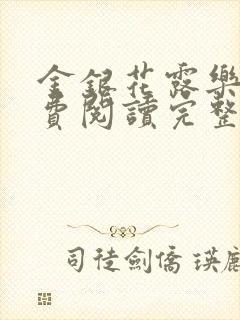 金銀花露樂
費閱讀完整
司徒劍僑 瑛